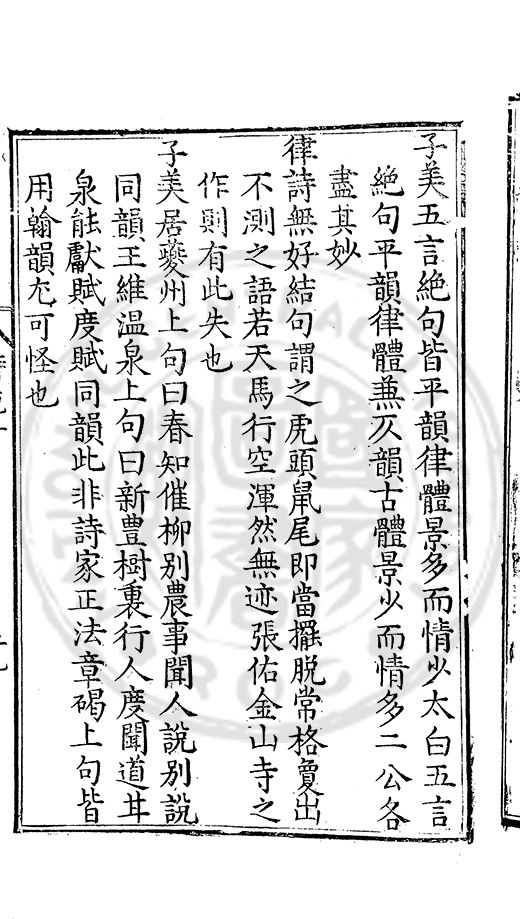 子美五言絶句皆平韻律體景多而情少太白五言
絶句平韻律體兼仄韻古體景少而情多二公各
盡其妙
律詩無好結句謂之虎頭鼠尾即當擺脱常格夐出
不測之語若天馬行空渾然無迹張佑金山寺之
作則有此失也
子美居夔州上句曰春知催柳别農事聞人説别説
同韻王維温泉上句曰新豊樹裏行人度聞道甘
泉能獻賦度賦同韻此非詩家正法章碣上句皆
用翰韻尤可怪也